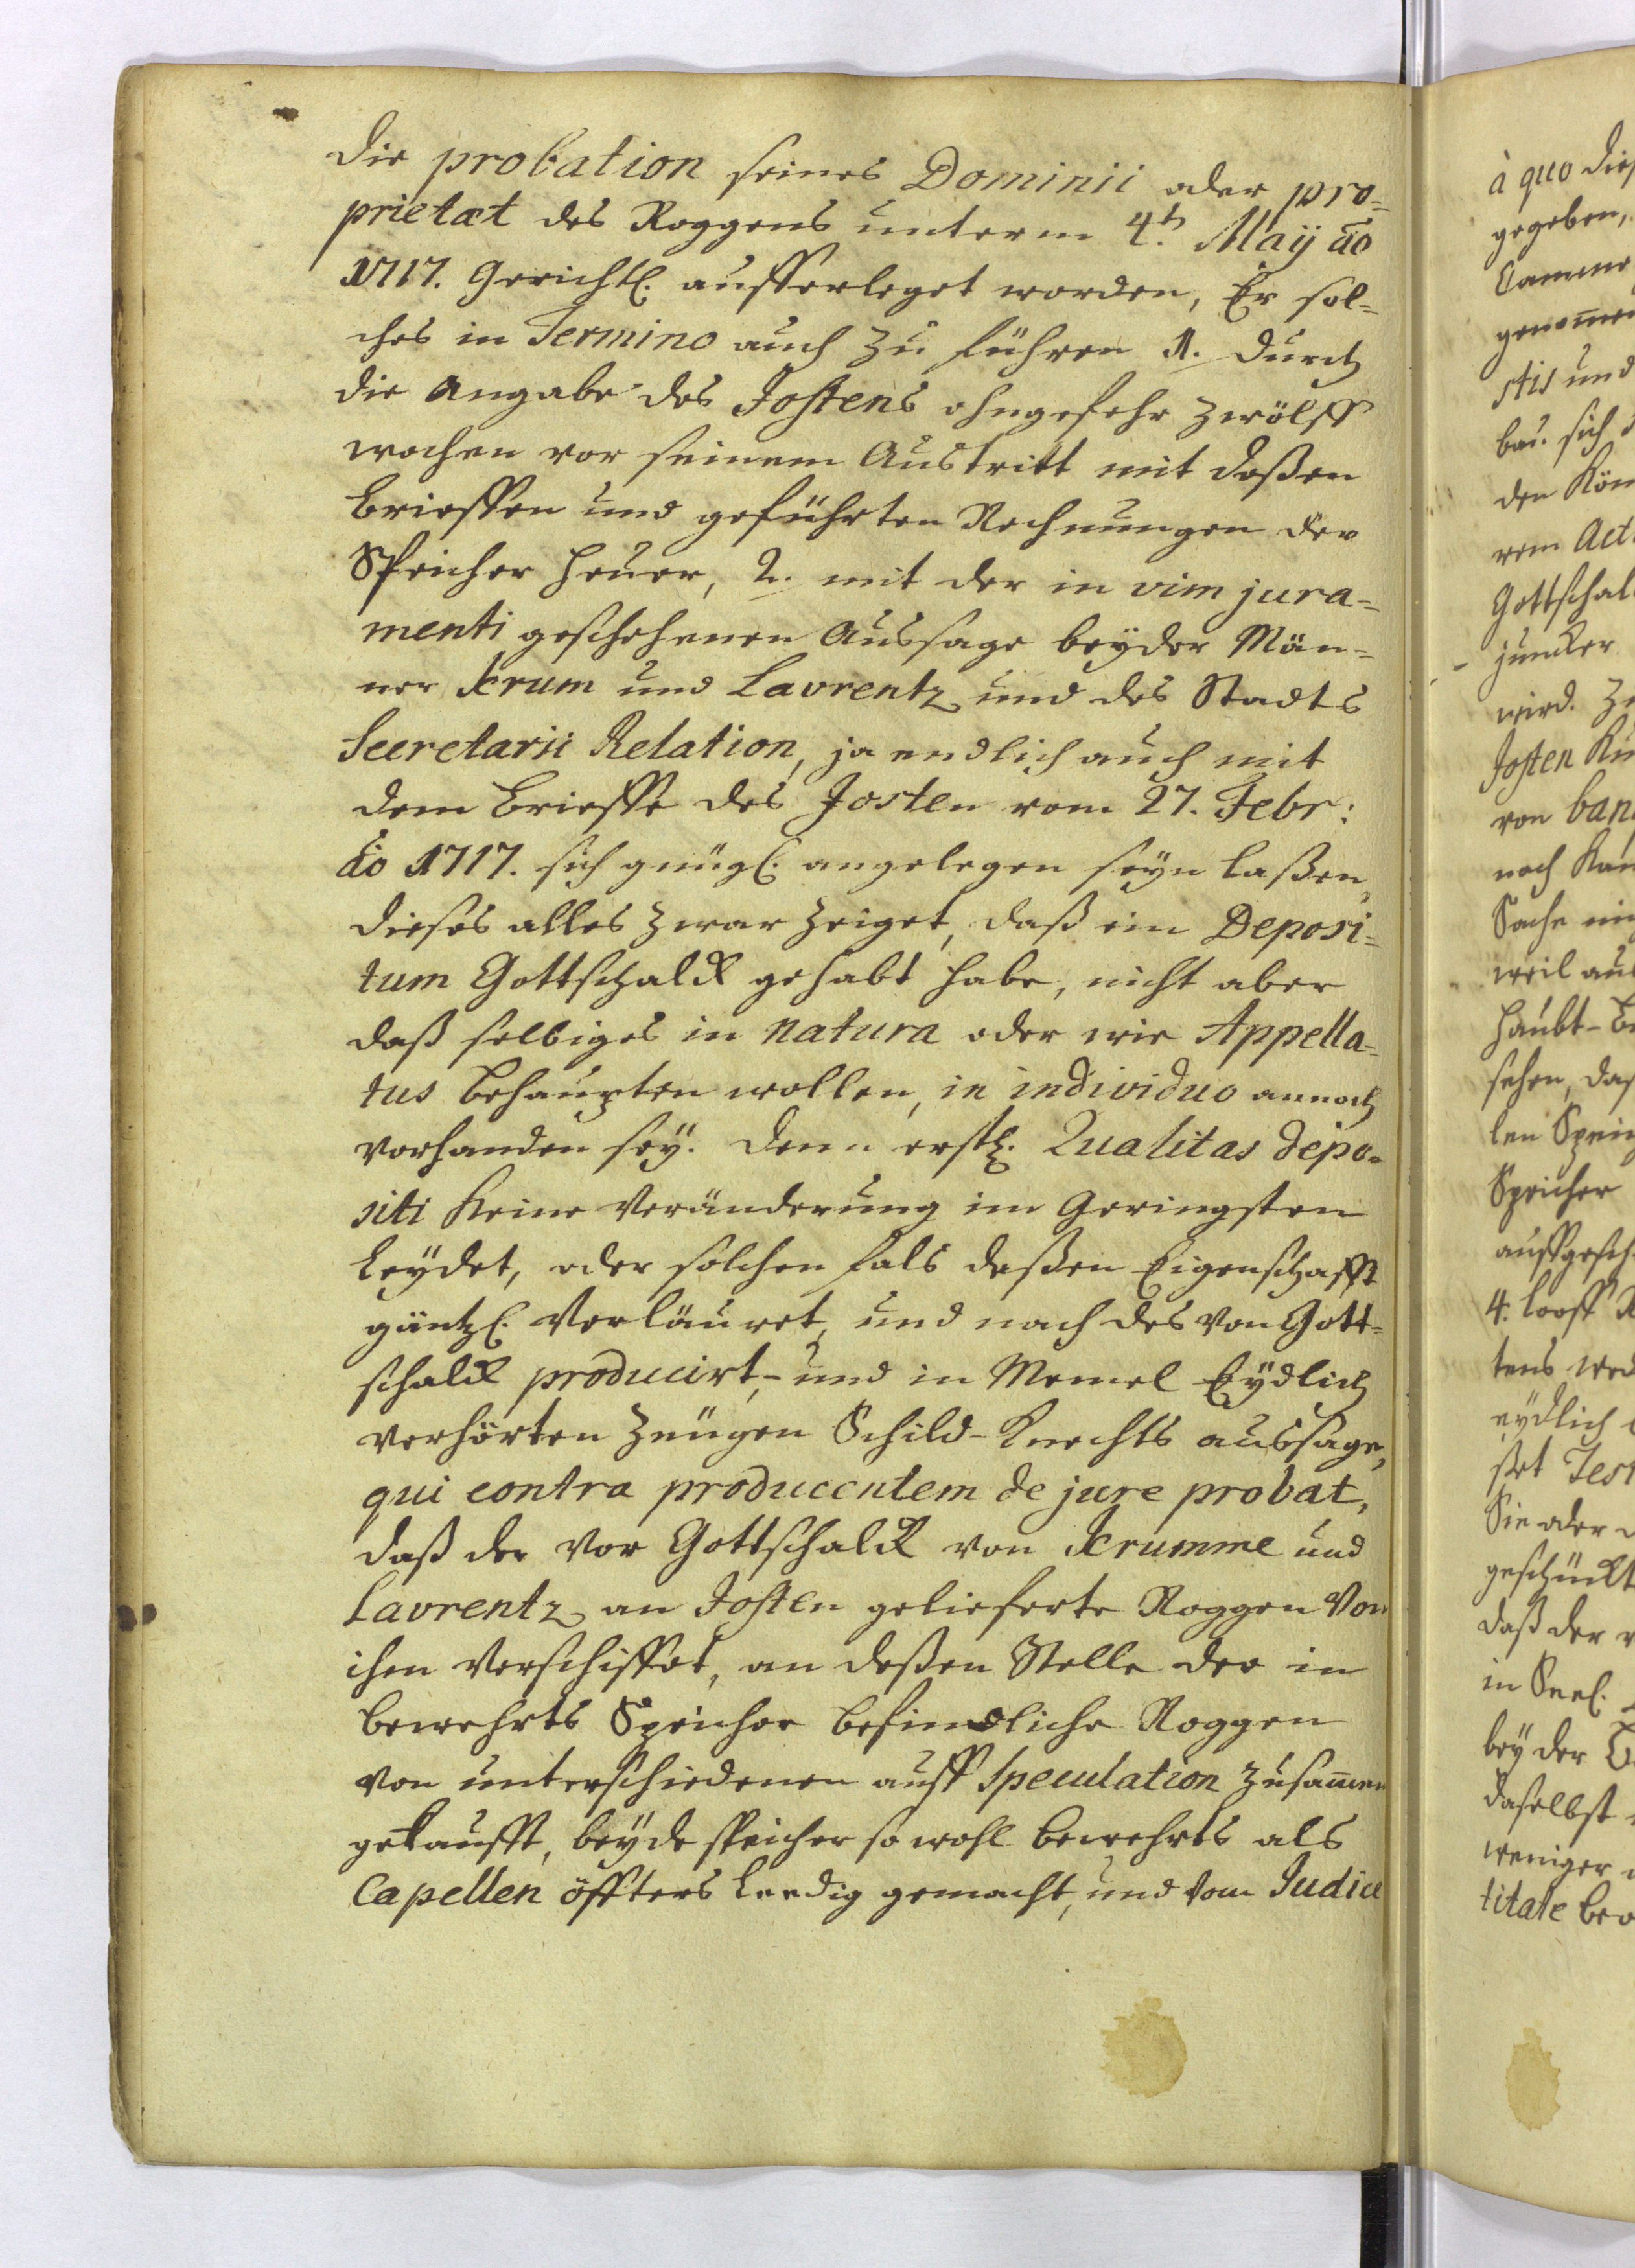 die probation seines Dominii oder pro=
prietæt des Roggens unterm 4t. Maij ao
1717. Gerichtl. aufferleget worden, Er sol=
ches in Termino auch zu führen 1. durch
die Angabe des Jostens ohngefehr zwölff
wochen vor seinem Austritt mit deßen
Brieffen und geführten Rechnungen der
Speicher Heuer, 2. mit der in vim jura=
menti geschehenen Aussage beyder Män=
ner Krum und Lavrentz und des Stadts
Secretarii Relation, ja endlich auch mit
dem Brieffe des Josten vom 27. Febr:
ao 1717. sich gnügl. angelegen seyn laßen,
dieses alles zwar zeiget, daß ein Deposi=
tum Gottschalck gehabt habe, nicht aber
daß selbiges in natura oder wie Appella=
tus behaupten wollen, in individuo annoch
vorhanden sey. Denn erstl. Qualitas depo=
siti keine Veränderung im Geringsten
leydet, oder solchen fals deßen Eigenschafft
gäntzl. Verläuret, und nach des von Gott=
schalck producirt,- und in Memel Eydlich
verhörten Zeugen Schild-Knechts aussage,
qui contra producentem de jure probat,
daß der vor Gottschalck von Krumme und
Lavrentz an Josten gelieferte Roggen Von
ihm Verschiffet, an deßen Stelle der in
bewehrts Speicher befindliche Roggen
von unterschiedenen auff Speculation zusammen
gekaufft, beyde speicher so wohl bewehrts als
Capellen öffters Leedig gemacht, und vom Judice
à quo
gegeben,
stis und
bau. sich
den
rem
juncker
wird.
Josten
von
noch
Sache
weil
Haubt-
sehen,
len
Speicher
4. looff
tens
eydlich
Sie oder
daß der
in Seel.
bey der
daselbst
weniger
titate